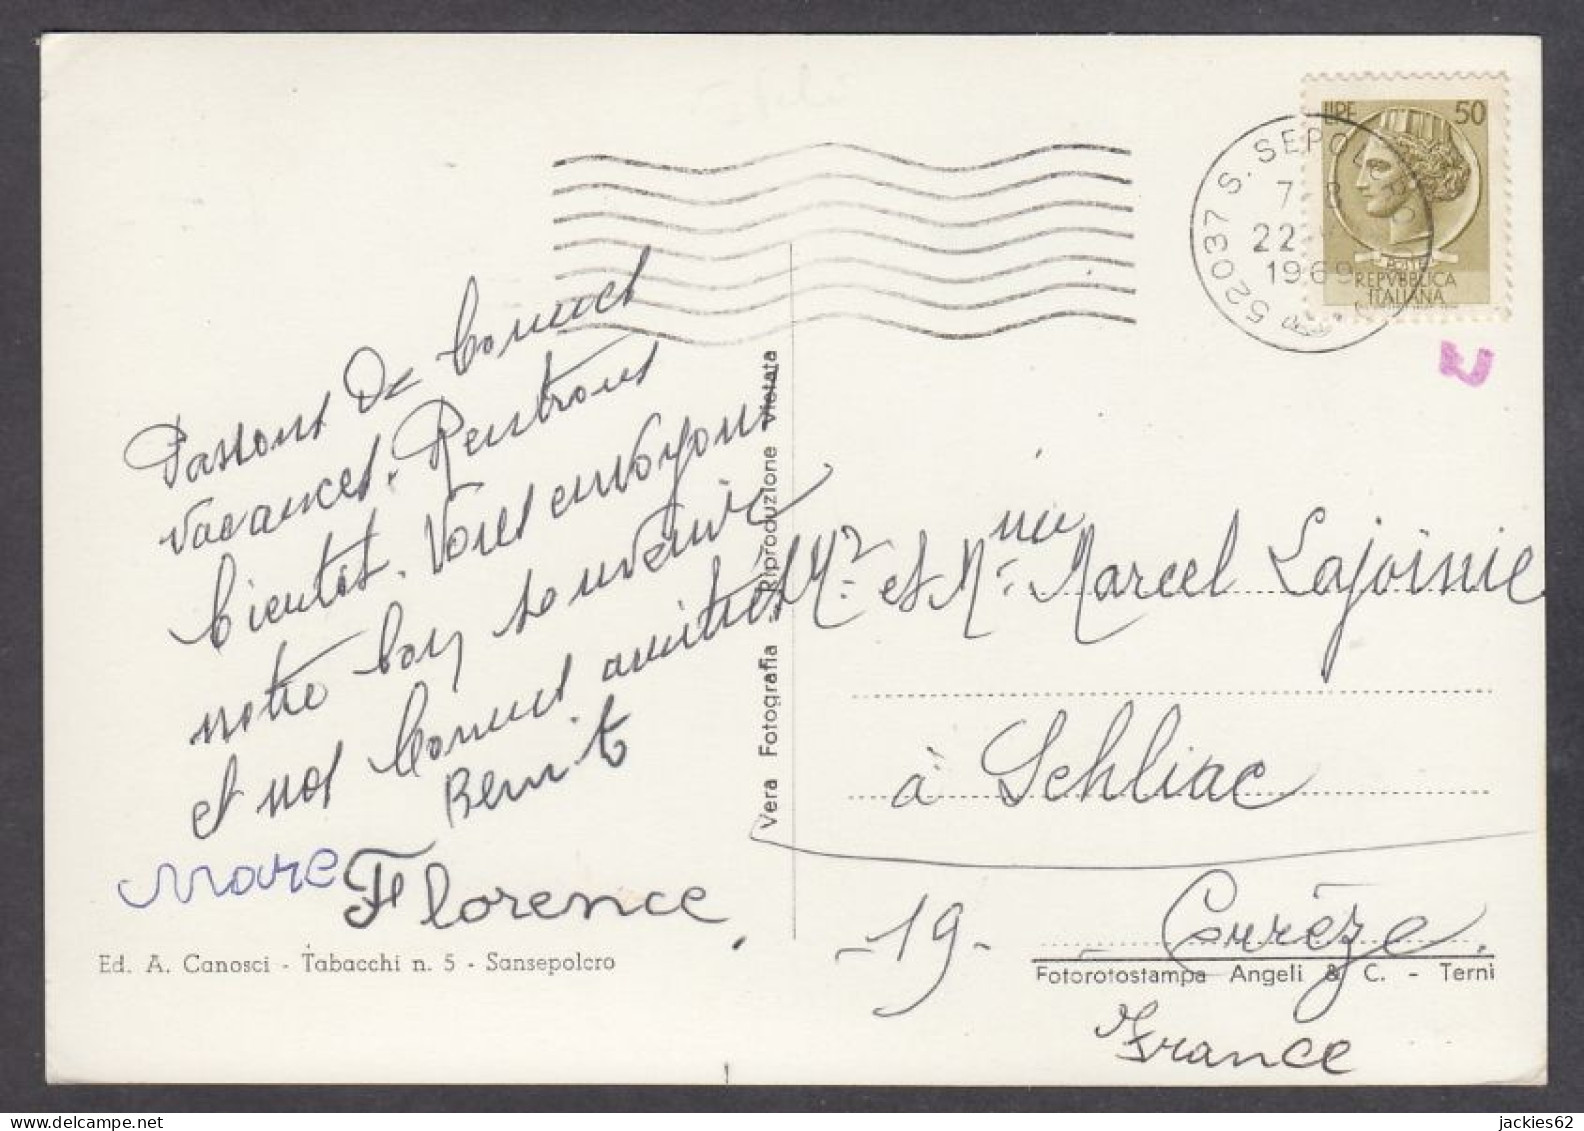 LIRE 50
52037 S. SEPOLCRO
22
1969
POSTE
REPVBBLICA
ITALIANA
Passons de bonnes
vacances. Rentrons
bientôt. Vous envoyons
notre bon souvenir
et nos bonnes amitiés
Benoit
Marc Florence
Ed. A. Canosci - Tabacchi n. 5 - Sansepolcro
Vera Fotografia - Riproduzione Vietata
Mr et Mme Marcel Lajoinie
à Sehliac
-19- Corrèze.
Fotorotostampa Angeli & C. - Terni
France
jackies62